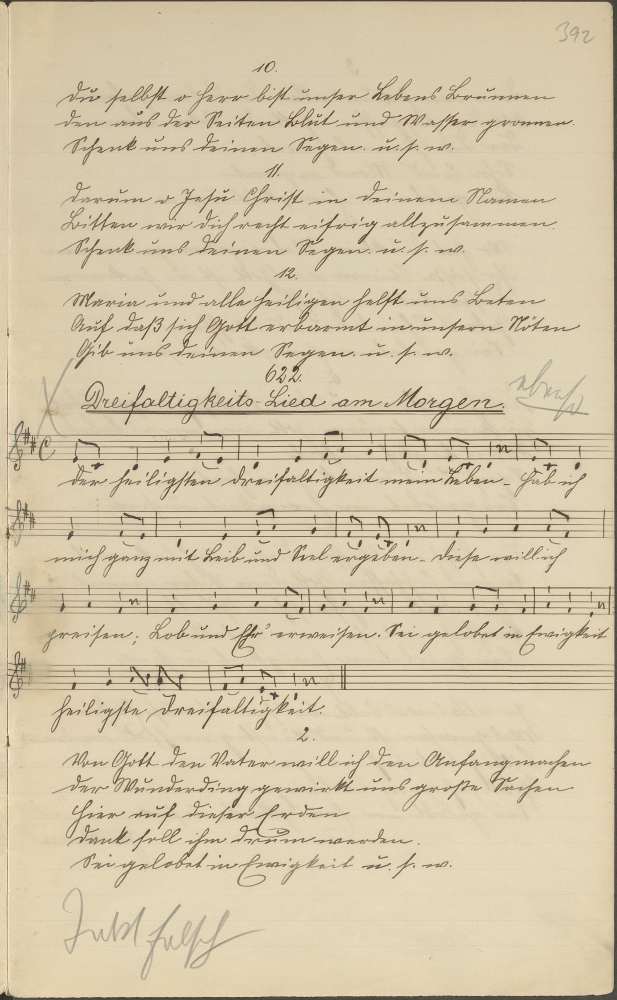 392
10.
Du selbst o Herr bist unser Lebens Brunnen
den aus der Seiten Blut und Wasser gronnen.
Schenk uns deinen Segen. u. s. w.
11.
Darum o Jesu Christ in deinem Namen
Bitten wir dich recht eifrig allzusammen.
Schenk uns deinen Segen. u. s. w.
12.
Maria und alle heiligen helft uns Beten
Auf daß sich Gott erbarmt in unsern Nöten
Gib uns deinen Segen. u. s. w.
622.
Dreifaltigkeits-Lied am Morgen.
der heiligsten dreifaltigkeit mein Leben – hab ich
mich ganz mit Leib und Seel ergeben – diese will ich
preisen; Lob und Ehr' erweisen. Sei gelobet in Ewigkeit
heiligste Dreifaltigkeit.
2.
Von Gott den Vater will ich den Anfang machen
der Wunderding gewirkt uns große Sachen
hier auf dieser Erden
dank soll ihm drum werden.
Sei gelobet in Ewigkeit u. s. w.
Takt falsch